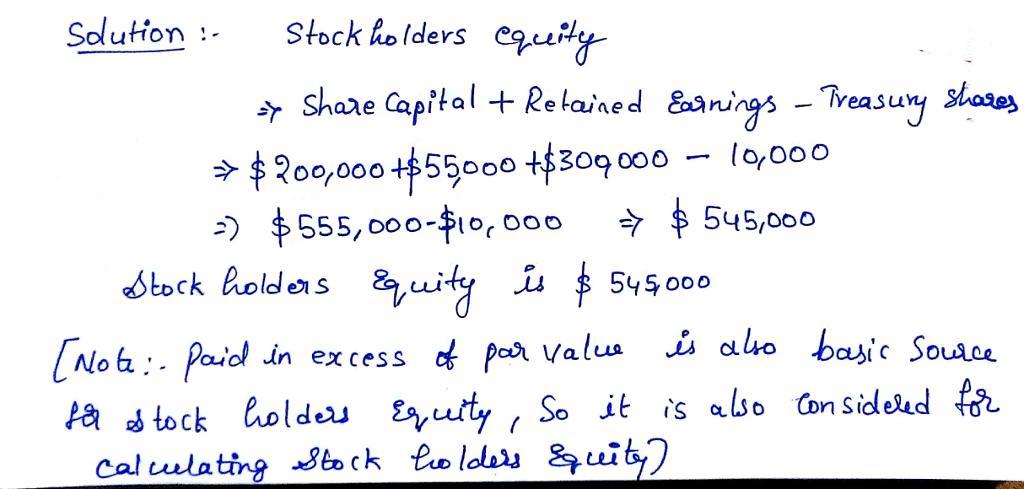 Solution :- Stock holders equity
⇒ Share Capital + Retained Earnings - Treasury shares
⇒ $200,000 +$55,000 +$300,000 - 10,000
=) $555,000-$10,000 ⇒ $545,000
Stock holders Equity is $545,000
[Note:- Paid in excess of par value is also basic Source
for stock holders Equity, So it is also Considered for
calculating Stock holders Equity)